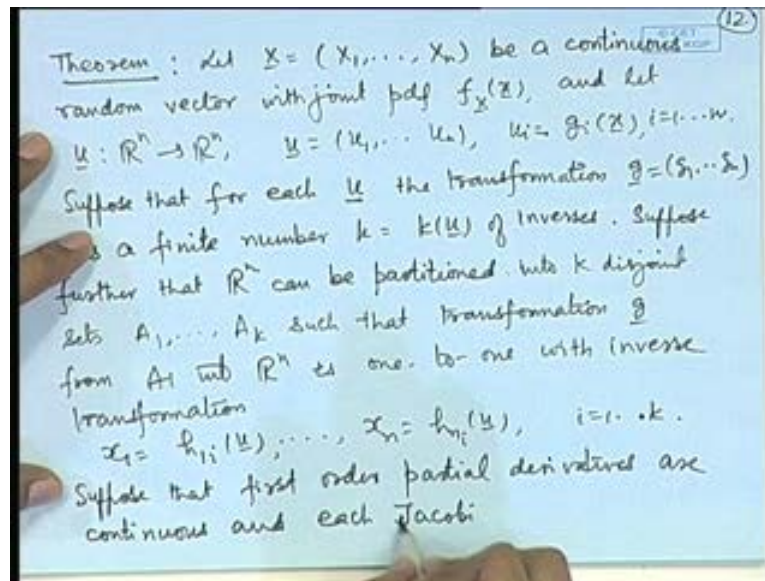 12.
Theorem : Let X = (X₁, . . . , Xₙ) be a continuous
random vector with joint pdf f_X(x), and let
u : ℝⁿ → ℝⁿ, u = (u₁, . . . uₙ), uᵢ = gᵢ(x), i=1 . . . n.
Suppose that for each u the transformation g = (g₁ . . . gₙ)
a finite number k = k(u) of inverses. Suppose
further that ℝⁿ can be partitioned into k disjoint
sets A₁, . . . , Aₖ such that transformation g
from Aᵢ into ℝⁿ is one-to-one with inverse
transformation
x₁ = h₁ᵢ(u), . . . . , xₙ = hₙᵢ(u), i=1 . . k.
Suppose that first order partial derivatives are
continuous and each Jacobi